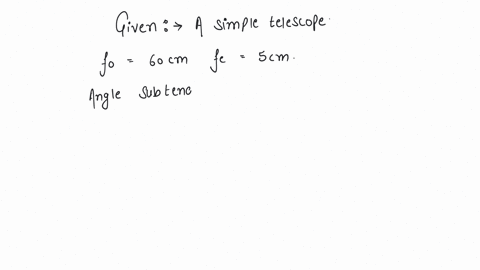 Given :→ A simple telescope.
fo = 60 cm fe = 5cm.
Angle subtenc